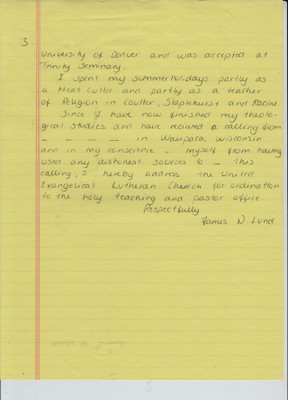 3.
University of Denver and was accepted at
Trinity Seminary.
I spent my summerholidays partly as
a Meat Cutter and partly as a teacher
of Religion in Coulter, Staplehurst and Racine.
Since I have now finished my theolo-
gical studies and have recieved a calling from
_ _ _ _ _ in Waupaca, Wisconsin
and in my conscience _ myself from having
used any dishonest sources to _ this
calling, I hereby address the United
Evangelical Lutheran Church for ordination
to the holy teaching and pastor office.
Respectfully
James N. Lund